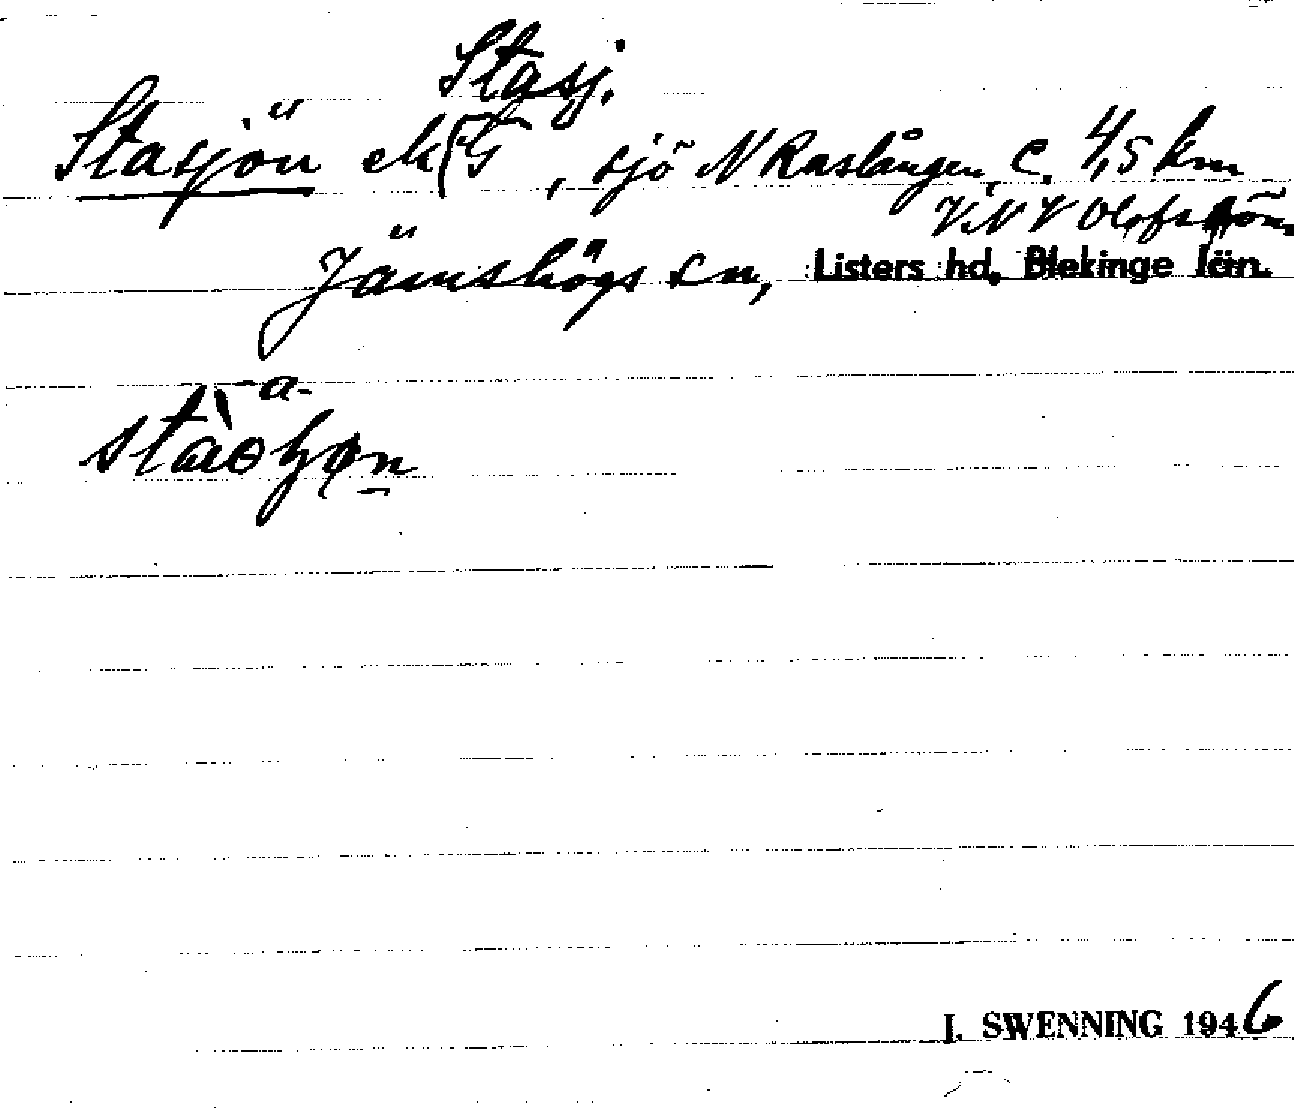 Stasj.
Stasjön ek G, sjö N Raslången, C. 4,5 km
V.N.V Olofström
Jämshögs sn, Listers hd, Blekinge län.
-a-
J. SWENNING 1946